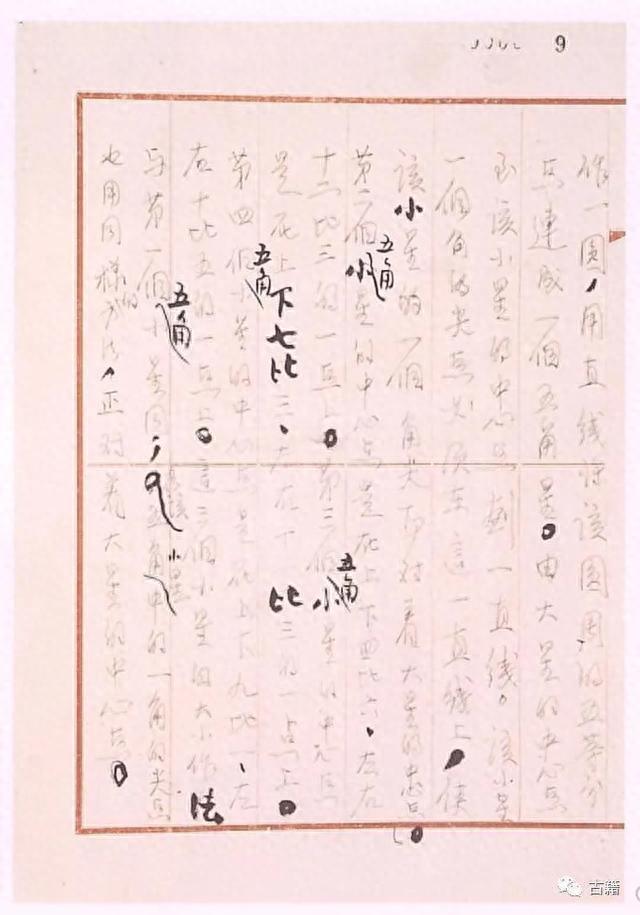 9
作一圆，用直线将该圆周的五等分
点連成一個五角星。由大星的中心点
至该小星的中心点划一直线。该小星
一個角的尖点必须在這一直线上，使
该小星的一個角尖正对着大星的中心点。
第二個小五角星的中心点是在上下四比六、左右
十二比三的一点上。第三個小五角星的中心点
是在上下七比三、左右十一比三的一点上。
第四個小五角星的中心点是在上下九比一、左
右十比五的一点上。這三個小星的大小作法
与第一個小五角星同，五角中的一角的尖点
也用同样的方法，正对着大星的中心点。
古籍